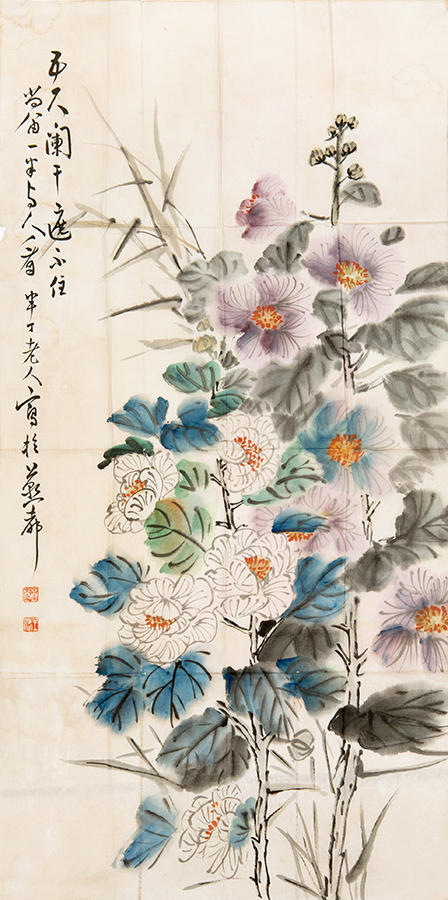 五尺阑干遮不住
尚留一半与人看 半丁老人写于燕都